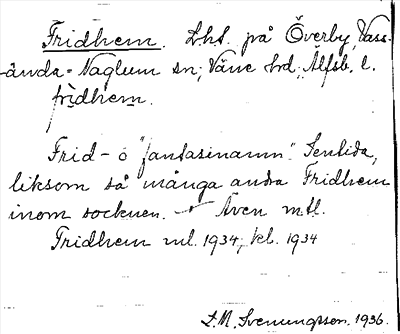 Fridhem. Lhs. på Överby, Vass-
ända-Naglum sn; Väne hd; Älfsb. l.
frìdhem.
Frid- o "fantasinamn". Sentida,
liksom så många andra Fridhem
inom socknen. — Även mtl.
Fridhem ml. 1934, kl. 1934
L. M. Svenungsson. 1936.